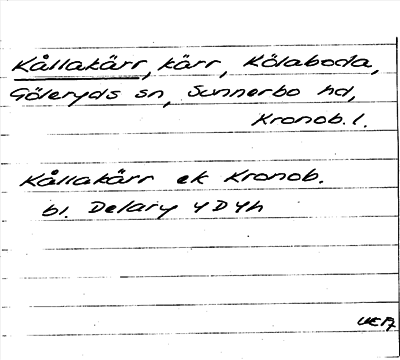 Kållakärr, kärr, Kölaboda,
Göteryds sn, Sunnerbo hd,
Kronob. l.
Kållakärr ek Kronob.
bl. Delary 4D4h